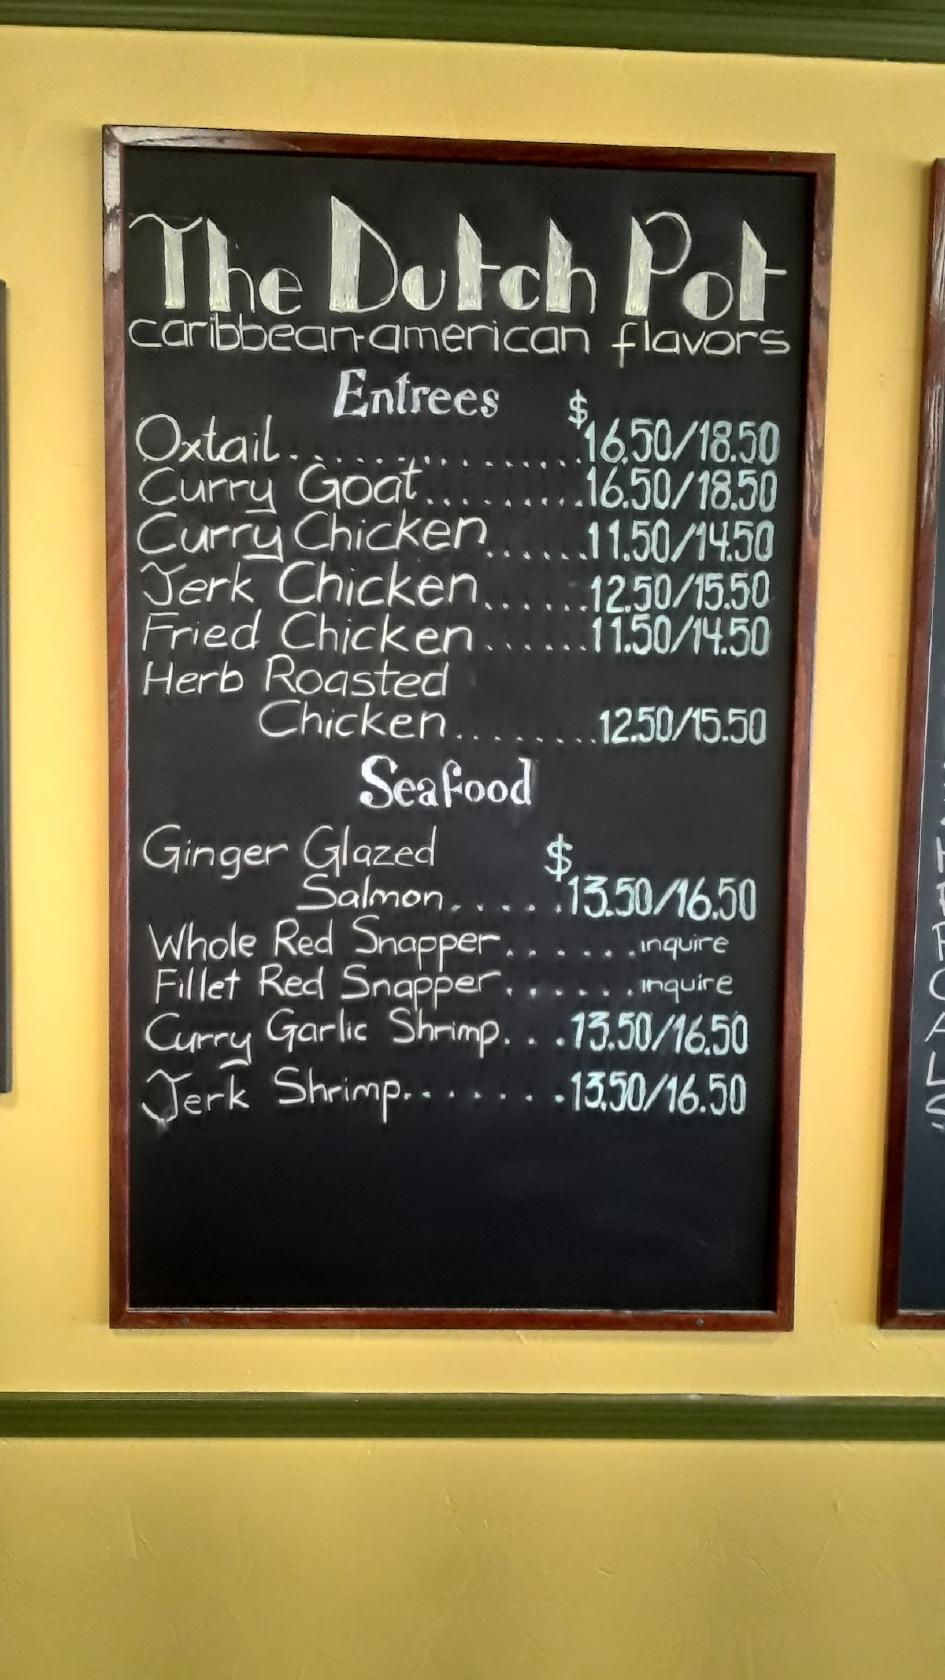 The Dutch Pot
caribbean-american flavors
Entrees
Oxtail..................$16.50/18.50
Curry Goat.........16.50/18.50
Curry Chicken......11.50/14.50
Jerk Chicken......12.50/15.50
Fried Chicken......11.50/14.50
Herb Roasted
Chicken........12.50/15.50
Seafood
Ginger Glazed
Salmon.....$13.50/16.50
Whole Red Snapper......inquire
Fillet Red Snapper......inquire
Curry Garlic Shrimp...13.50/16.50
Jerk Shrimp.......13.50/16.50